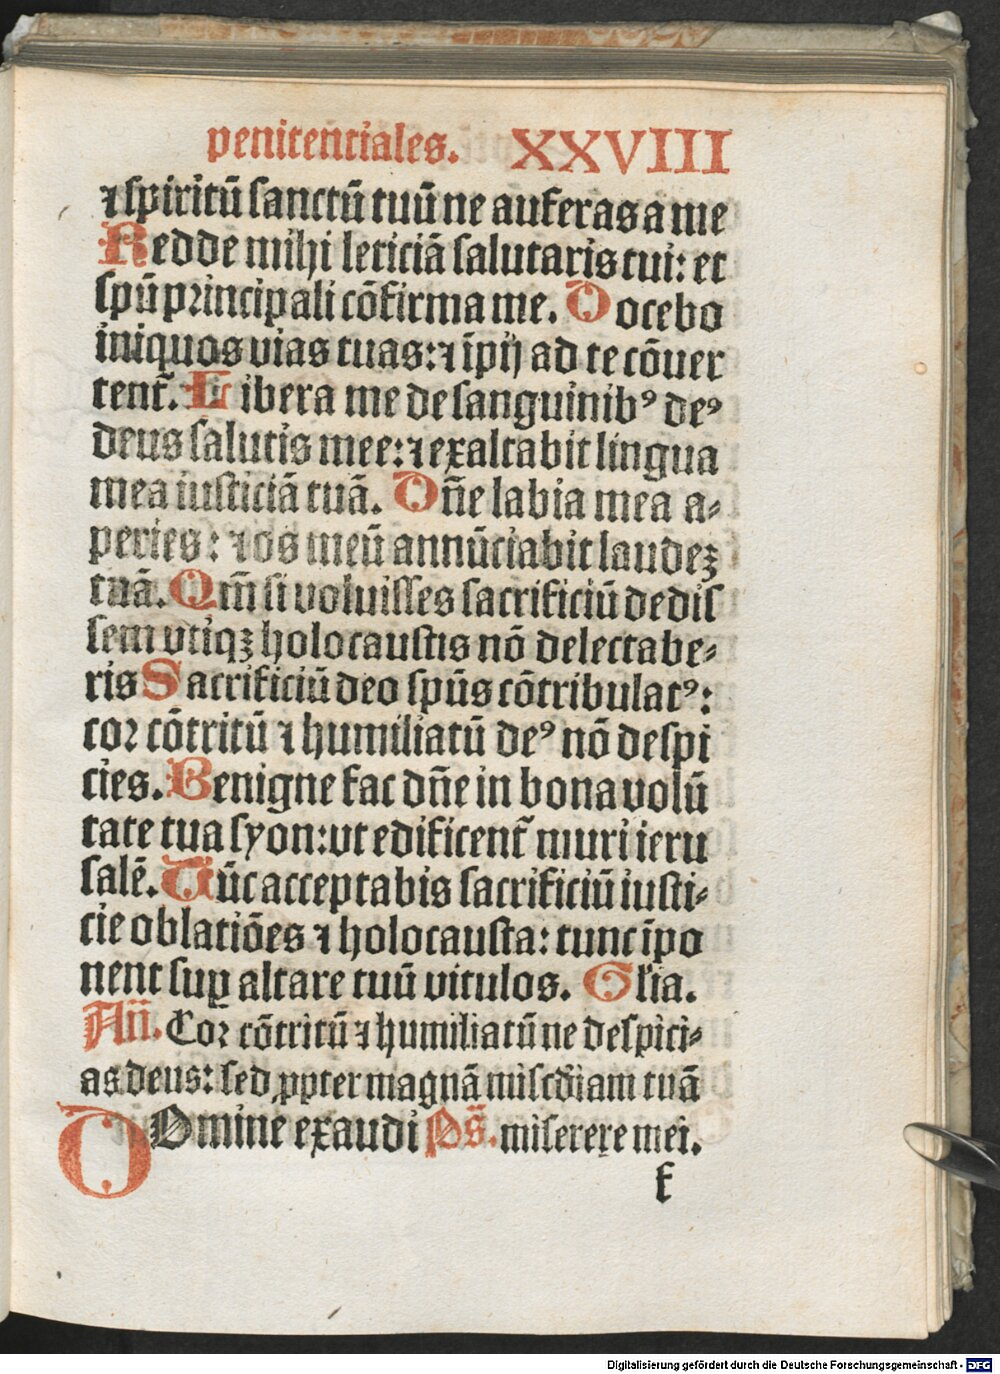 penitentiales. XXVIII
⁊ spiritū sanctū tuū ne auferas a me
Redde mihi leticiā salutaris tui: et
spū principali cōfirma me. Docebo
iniquos vias tuas: ⁊ īpij ad te cōuer
tent̄. Libera me de sanguinibꝰ deꝰ
deus salutis mee: ⁊ exaltabit lingua
mea iusticiā tuā. Dn̄e labia mea a⸗
peries: ⁊ os meū annūciabit laudeꝫ
tuā. Qm̄ si voluisses sacrificiū dedis
sem vtiqꝫ holocaustis nō delectabe⸗
ris Sacrificiū deo spūs cōtribulatꝰ:
cor cōtritū ⁊ humiliatū deꝰ nō despi
cies. Benigne fac dn̄e in bona volū
tate tua syon: vt edificent̄ muri ieru
salē. Tūc acceptabis sacrificiū iusti⸗
cie oblatiōes ⁊ holocausta: tunc īpo
nent suꝑ altare tuū vitulos. Gl̄ia.
Añ. Cor cōtritū ⁊ humiliatū ne despici⸗
as deus: sed ꝓpter magnā miscd̄iam tuā
DOmine exaudi Ps̄. miserere mei.
f
Digitalisierung gefördert durch die Deutsche Forschungsgemeinschaft - DFG